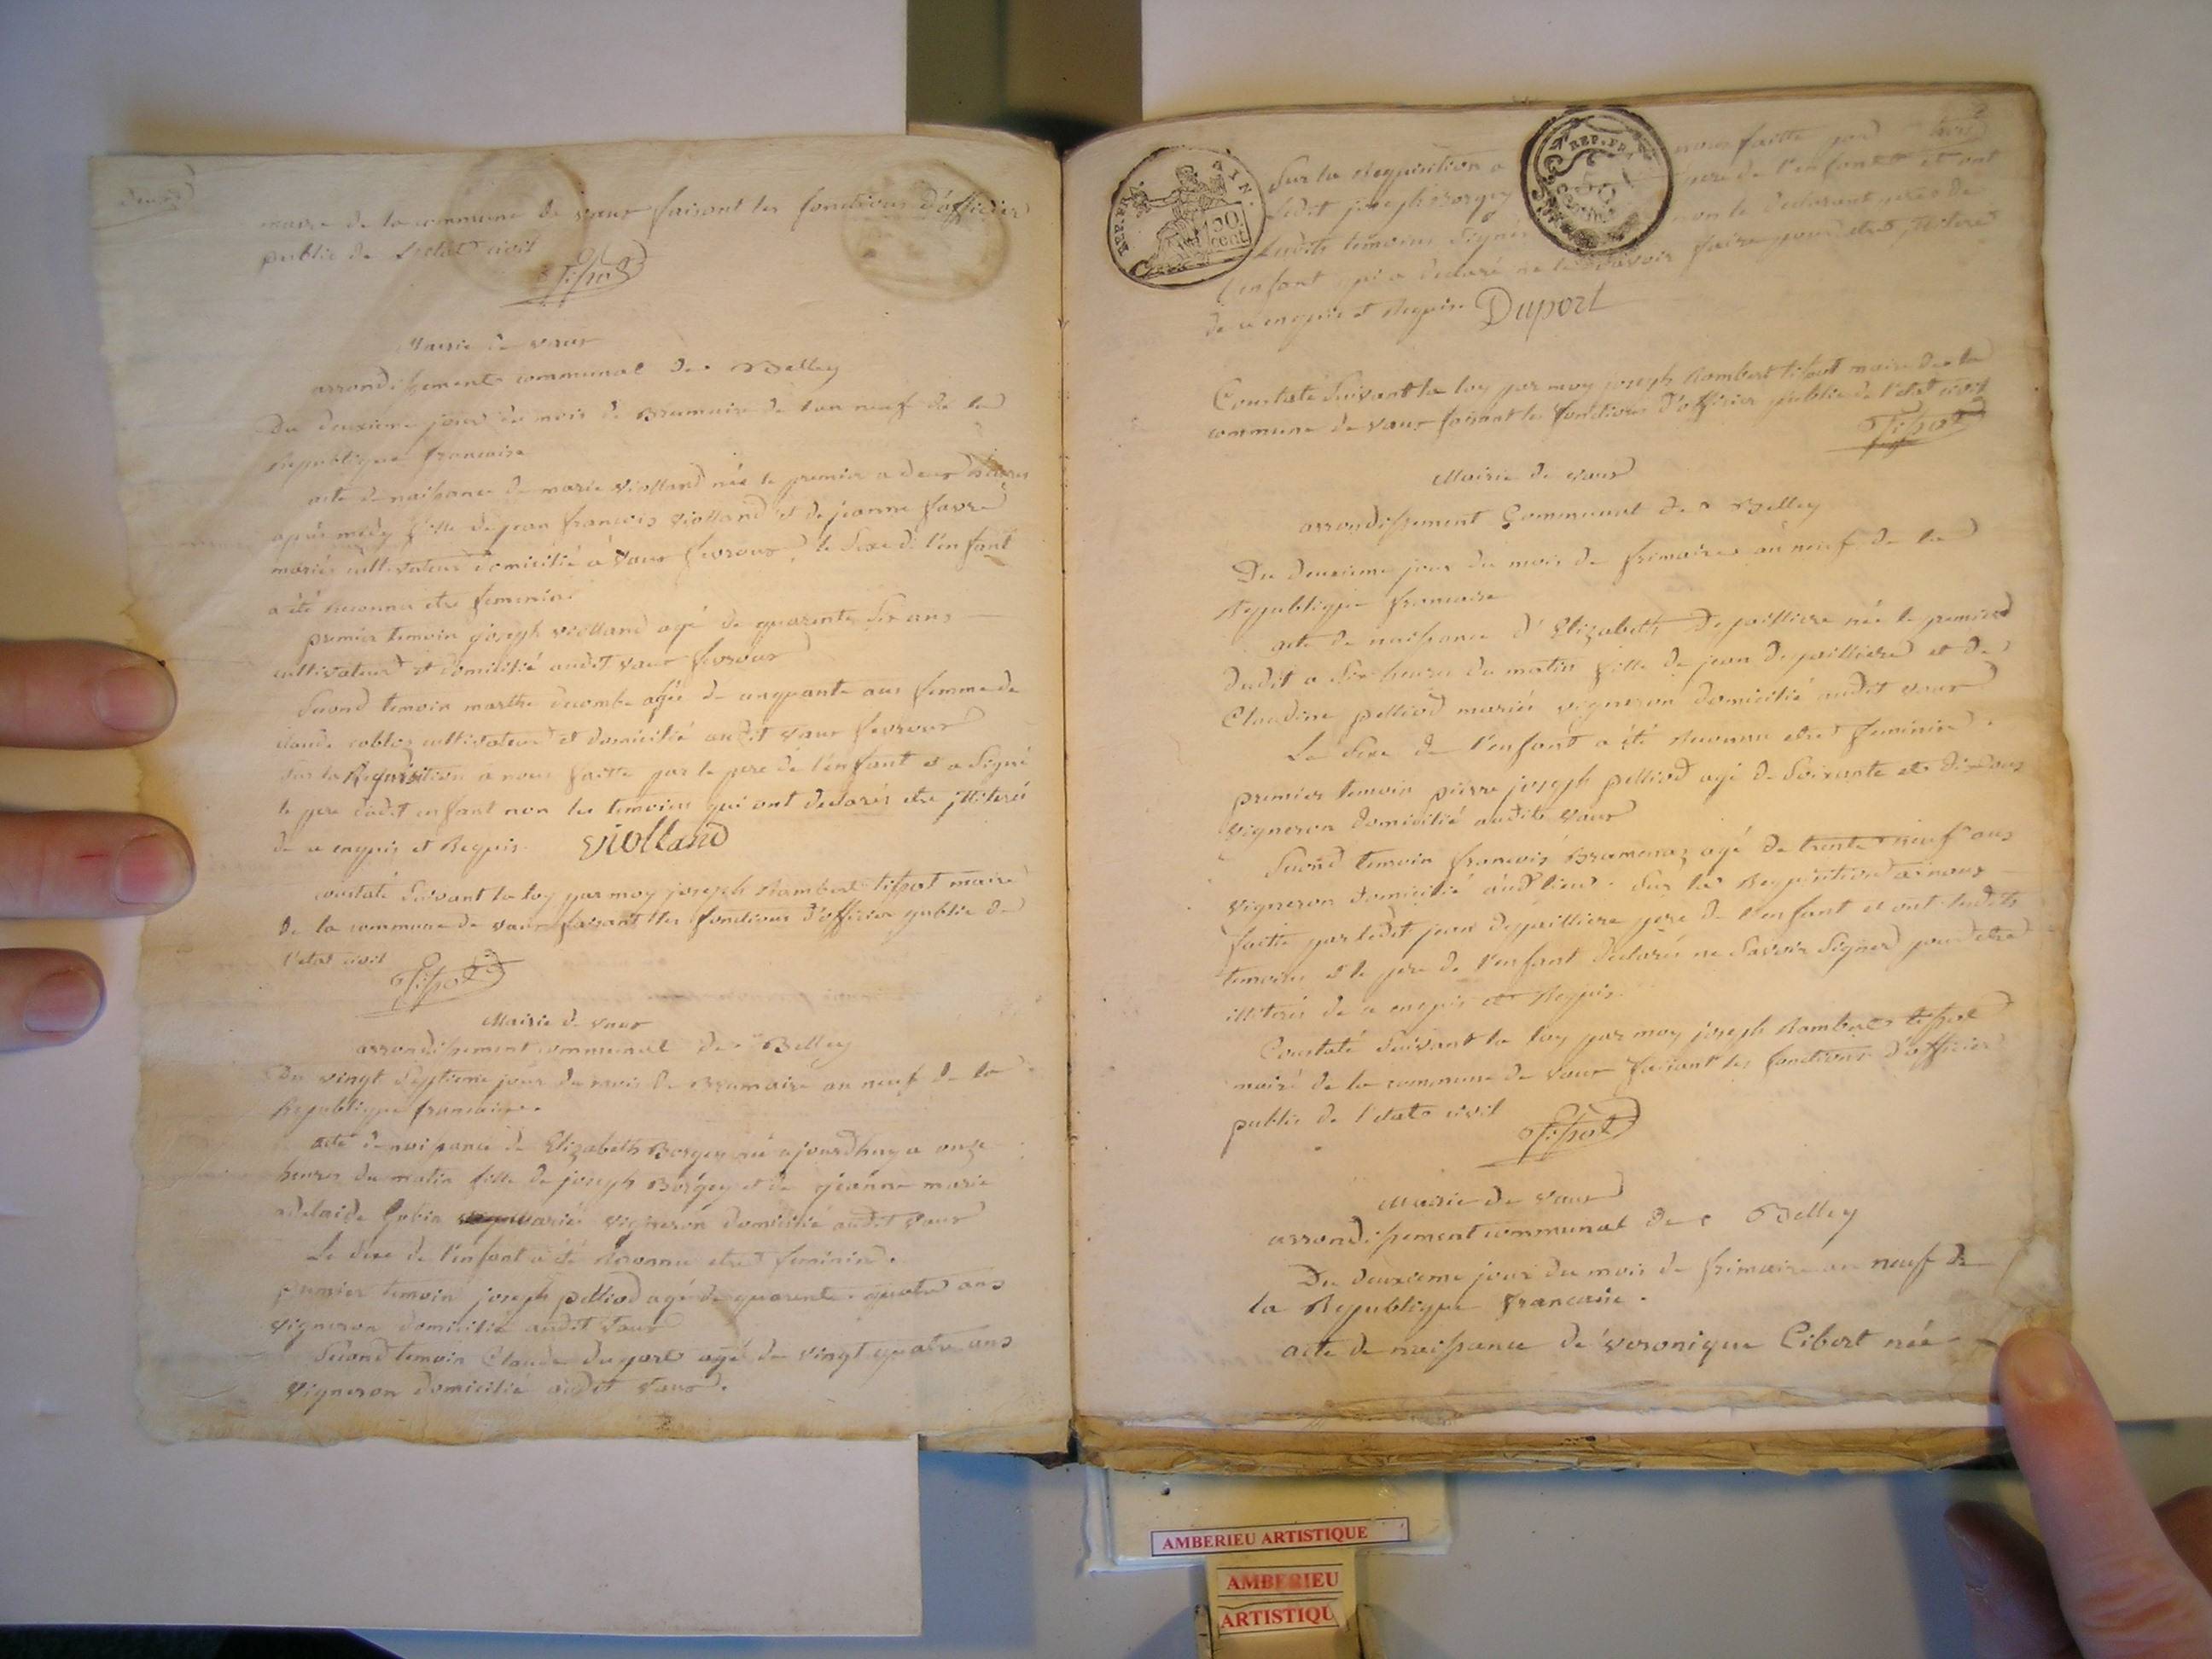 deux
maire de la commune de vaux faisant les fonctions d'officier
public de l'etat civil
Tissot
Mairie de vaux
arrondissement communal de Belley
Du deuxieme jour du mois de Brumaire de l'an neuf de la
Republique francaise
acte de naissance de marie Violland née le premier a deux heures
après midy fille de jean françois Violland et de jeanne favre
mariés cultivateur domicilié à Vaux fevroux, le sexe de l'enfant
a été reconnu etre feminin
premier temoin joseph violland agé de quarente six ans
cultivateur et domicilié audit vaux fevroux
second temoin marthe decombe agée de cinquante ans femme de
claude cobloz cultivateur et domicilié audit vaux fevroux
sur la Requisition a nous faitte par le pere de l'enfant et a signé
le pere dudit enfant non les temoins qui ont declarés etre jlliterés
de ce enquis et Requis. Violland
constaté suivant la loy par moy joseph Rambert tissot maire
de la commune de vaux faisant les fonctions d'officier public de
l'etat civil
Tissot
Mairie de vaux
arrondissement communal de Belley
Du vingt septieme jour du mois de Brumaire an neuf de la
Republique francaise.
acte de naissance de Elizabeth Borgey née ajourdhuy a onze
heures du matin fille de joseph Borgey et de jeanne marie
adelaide mariés vigneron domicilié audit vaux
Le sexe de l'enfant a été reconnu etre feminin.
premier temoin joseph pelliod agé de quarente quatre ans
vigneron domicilié audit vaux
second temoin Claude duport agé de vingt quatre ans
vigneron domicilié audit vaux.
REP. FRA.
TIN.
50
cent
REP. FRA.
50
Centimes
trois
Sur la Requisition a nous faitte par
ledit joseph Borgey pere de l'enfant et ont
lesdits temoins signés non le declarant pere de
l'enfant qui a declaré ne le savoir faire pour etre jlliteré
de ce enquis et Requis. Duport
Constaté suivant la loy par moy joseph Rambert tissot maire de la
commune de vaux faisant les fonctions d'officier public de l'etat civil
Tissot
Mairie de vaux
arrondissement Communal de Belley
Du deuxieme jour du mois de frimaire an neuf de la
Republique francaise
acte de naissance d'Elizabeth Depailliere née le premier
dudit a six heures du matin fille de jean depailliere et de
Claudine pelliod mariés vigneron domicilié audit vaux
Le sexe de l'enfant a été reconnu etre feminin.
premier temoin pierre joseph pelliod agé de soixante et dix ans
vigneron domicilié audit vaux
second temoin francois Bramenaz agé de trente neuf ans
vigneron domicilié audt lieu. Sur la Requisition a nous
faitte par ledit jean depailliere pere de l'enfant et ont lesdits
temoins et le pere de l'enfant declarés ne savoir signer pour etre
illiterés de ce enquis et Requis.
Constaté suivant la loy par moy joseph Rambert tissot
maire de la commune de vaux faisant les fonctions d'officier
public de l'etat civil
Tissot
Mairie de vaux
arrondissement communal de Belley
Du deuxieme jour du mois de frimaire an neuf de
la Republique francaise.
acte de naissance de veronique Cibert née
AMBERIEU ARTISTIQUE
AMBERIEU
ARTISTIQU